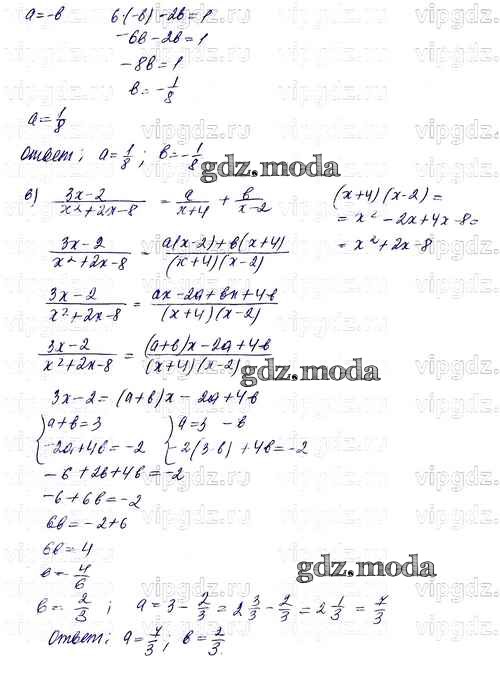 a=-в 6·(-в)-2в=1
-6в-2в=1
-8в=1
в=-1/8
a=1/8
Ответ: a=1/8; в=-1/8
gdz.moda
в) (3x-2)/(x²+2x-8) = a/(x+4) + в/(x-2) (x+4)(x-2)=
= x²-2x+4x-8=
(3x-2)/(x²+2x-8) = (a(x-2)+в(x+4))/((x+4)(x-2)) = x²+2x-8
(3x-2)/(x²+2x-8) = (ax-2a+вx+4в)/((x+4)(x-2))
(3x-2)/(x²+2x-8) = ((a+в)x-2a+4в)/((x+4)(x-2))
gdz.moda
3x-2=(a+в)x-2a+4в
{a+в=3 {a=3-в
-2a+4в=-2 -2(3-в)+4в=-2
-6+2в+4в=-2
-6+6в=-2
6в=-2+6
6в=4
gdz.moda
в=4/6
в=2/3; a=3-2/3=2 3/3-2/3=2 1/3=7/3
Ответ: a=7/3; в=2/3.
vipgdz.ru